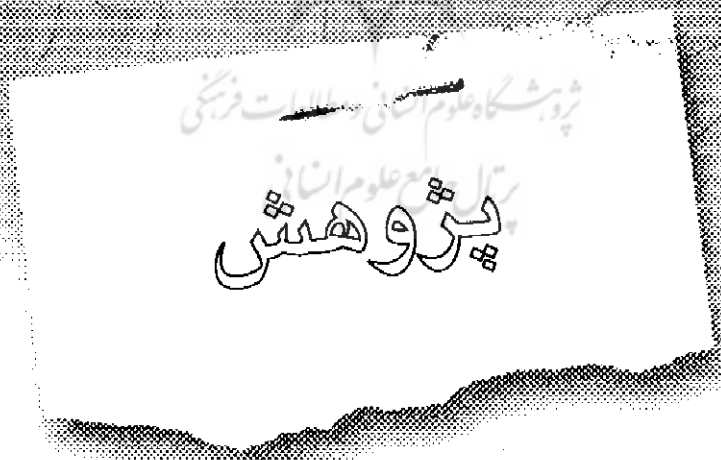 پژوهشگاه علوم انسانی و مطالعات فرهنگی
پرتال جامع علوم انسانی
پژوهش